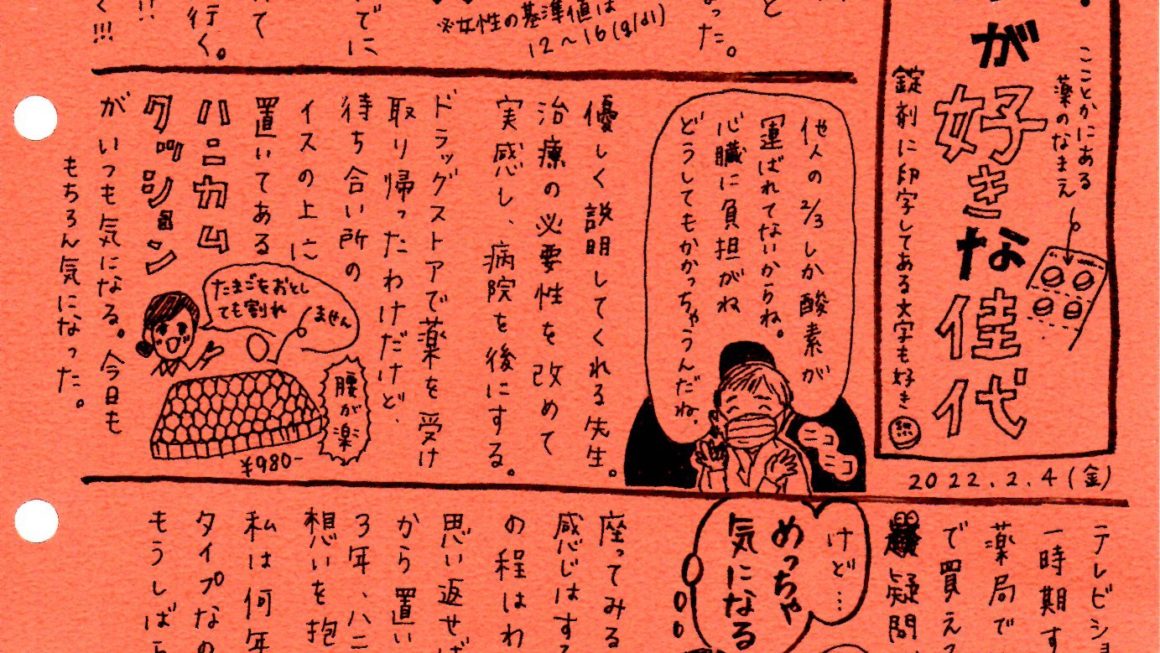 が好きな佳代
ここかにある
薬のなまえ
錠剤に印字してある文字も好き
2022.2.4(金)
と
なった。
※女性の基準値は
12〜16(g/dl)
でに
て
行く。
!!
く!!!
他人の2/3しか酸素が
運ばれてないからね。
心臓に負担がね
どうしてもかかっちゃうんだね。
ニコニコ
優しく説明してくれる先生。
治療の必要性を改めて
実感し、病院を後にする。
ドラッグストアで薬を受け
取り帰ったわけだけど、
待ち合い所の
イスの上に
置いてある
ハニカム
クッション
がいつも気になる。今日も
もちろん気になった。
たまごをおとし
ても割れ
ません
腰が楽
¥980-
テレビショ
一時期す
薬局で
で買えて
疑問
けど…
めっちゃ
気になる
座ってみる
感じはす
の程はわ
思い返せば
から置い
3年、ハニ
想いを抱
私は何年
タイプなの
もうしばら